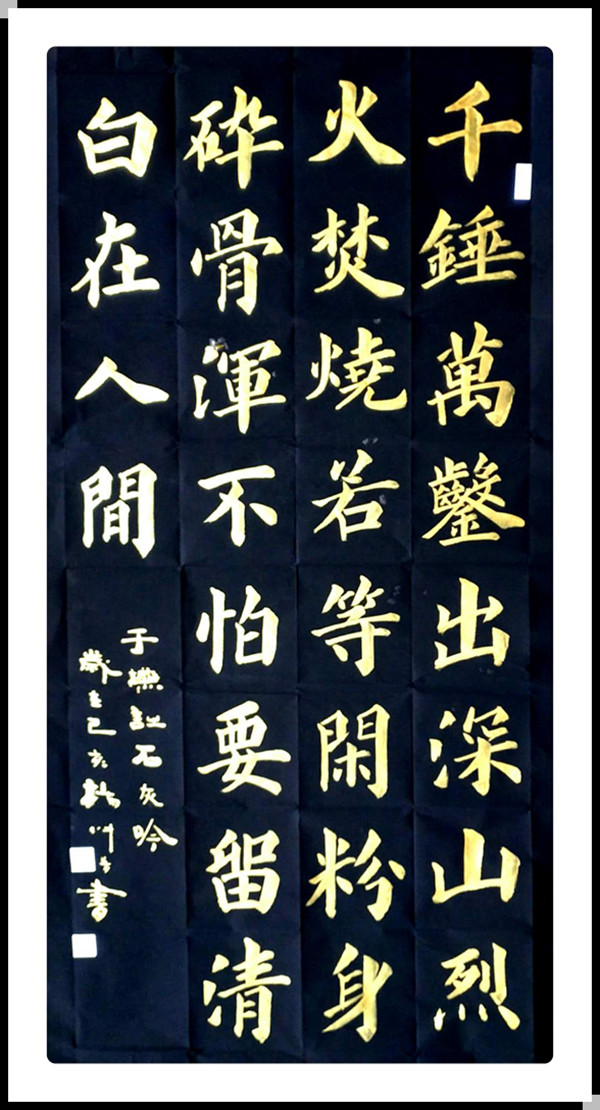 千錘萬鑿出深山烈
火焚燒若等閑粉身
碎骨渾不怕要留清
白在人間
于謙記石灰吟
歲在己亥
書